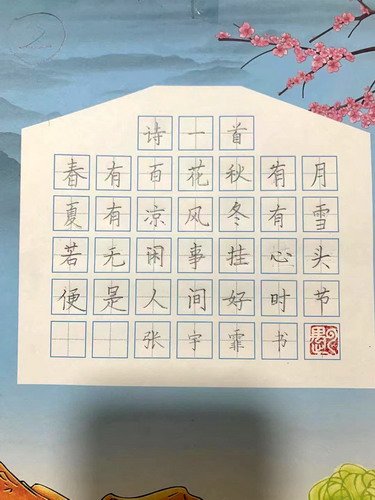 诗一首
春有百花秋有月
夏有凉风冬有雪
若无闲事挂心头
便是人间好时节
张宇霏书